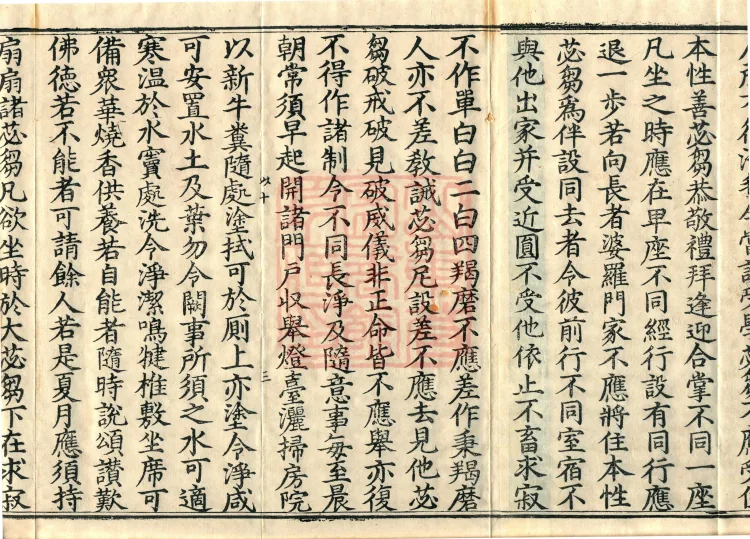 本性善苾蒭恭敬禮拜逢迎合掌不同一座
凡坐之時應在卑座不同經行設有同行應
退一步若向長者婆羅門家不應將住本性
苾蒭為伴設同去者令彼前行不同室宿不
與他出家并受近圓不受他依止不畜求寂
不作單白白二白四羯磨不應差作秉羯磨
人亦不差教誡苾蒭尼設差不應去見他苾
蒭破戒破見破威儀非正命皆不應舉亦復
不得作諸制令不同長淨及隨意事每至晨
朝常須早起開諸門户収舉燈臺灑掃房院
以十
三
以新牛糞隨處塗拭可於厠上亦塗令淨咸
可安置水土及葉勿令闕事所須之水可適
寒温於水竇處洗令淨潔鳴犍椎敷坐席可
備衆華燒香供養若自能者隨時說頌讃歎
佛德若不能者可請餘人若是夏月應須持
扇扇諸苾蒭凡欲坐時於大苾蒭下在求寂